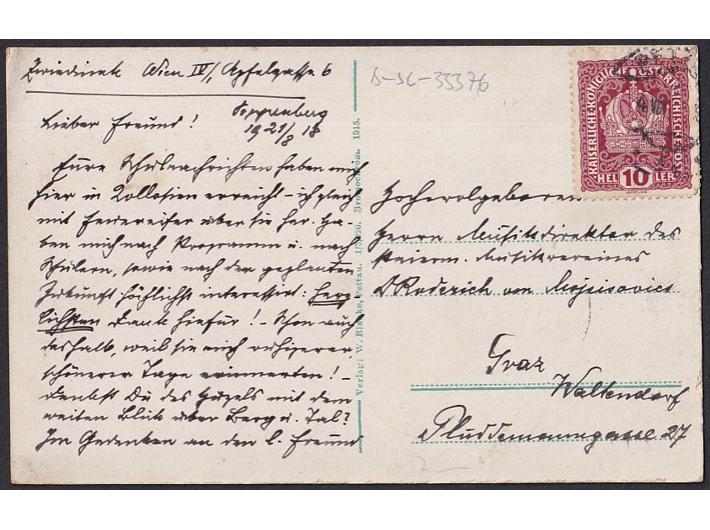 Zwiedinek Wien IV/, Apfelgasse 6
D-SC-33376
Lieber Freund!
19 21/8 18
Eure Schulnachrichten haben mich
hier in erreicht – ich gleich
mit Feuereifer über sie her. Ha-
ben mich nach Programm u. nach
Schülern, sowie nach den geplanten
Zukunft höchlichst interessiert: Herz-
lichsten Dank hiefür! – Schon auch
deshalb, weil sie mich ruhigerer
schönerer Tage erinnerten! –
Denkst Du des Hügels mit dem
weiten Blick über Berg u. Tal?
Im Gedenken an den l. Freund
Verlag: W. Blanke, Pettau. 1915.
KAISERLICHE KÖNIGLICHE ÖSTERREICHISCHE POST
HELLER
10
Hochwolgeboren
Herrn Musikdirektor des
steierm. Musikvereines
D Roderich von Mojsisovics
Graz
Waltendorf
Pluddemanngasse 27